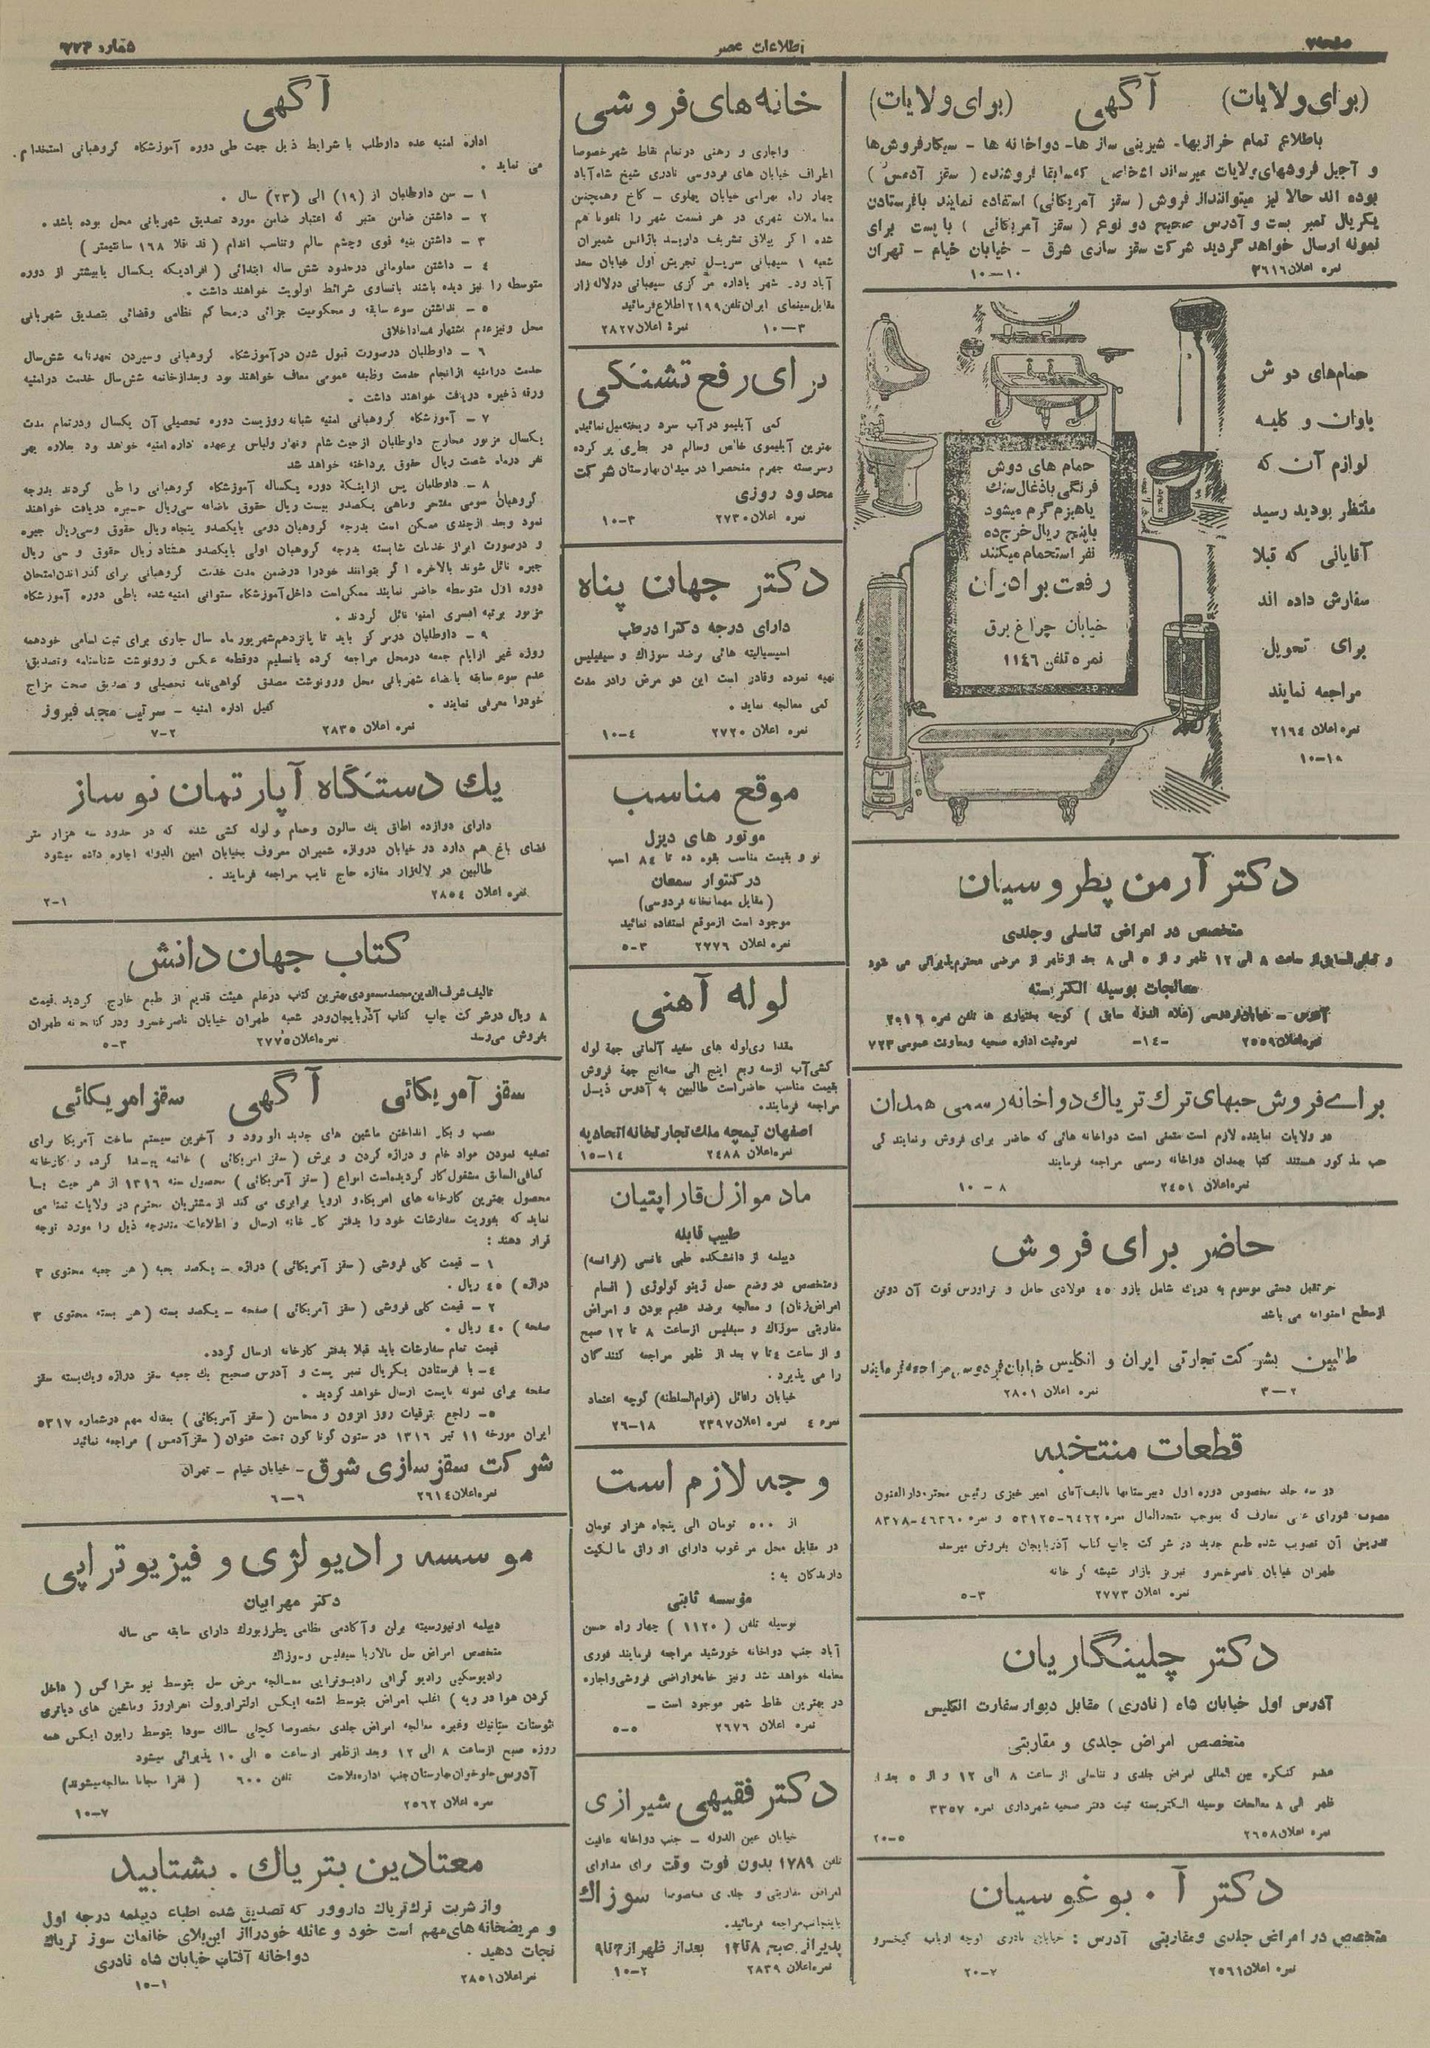 صفحه ۷
اطلاعات عصر
شماره ۹۷۲۳
(برای ولایات) آگهی (برای ولایات)
باطلاع تمام خرازیها- شیرینی ساز ها- دواخانه ها - سیگارفروش‌ها
و آجیل فروشهای ولایات میرساند اشخاصی که سابقا فروشنده (سقز آدمس)
بوده اند حالا نیز میتوانند از فروش (سقز آمریکائی) استفاده نمایند بافرستادن
یکریال تمبر پست و آدرس صحیح دو نوع (سقز آمریکائی) با پست برای
نمونه ارسال خواهد گردید شرکت سقز سازی شرق - خیابان خیام - تهران
نمره اعلان ۲۶۱۶ ۱۰-۱۰
حمام‌های دوش
باوان و کلیه
لوازم آن که
منتظر بودید رسید
آقایانی که قبلا
سفارش داده اند
برای تحویل
مراجعه نمایند
نمره اعلان ۲۱۶۴
۱۰-۱۰
حمام های دوش
فرنگی باذغال سنگ
یاهیزم گرم میشود
باپنج ریال خرج ده
نفر استحمام میکنند
رفعت برادران
خیابان چراغ برق
نمره تلفن ۱۱۴۶
دکتر آرمن پطروسیان
متخصص در امراض تناسلی و جلدی
و کمافی‌السابق از ساعت ۸ الی ۱۲ ظهر و از ۵ الی ۸ بعد از ظهر از مرضی محترم پذیرائی می شود
معالجات بوسیله الکتریسته
آدرس - خیابان فردوسی (علاء الدوله سابق) کوچه بختیاری ها تلفن نمره ۲۰۱۶
نمره اعلان ۲۵۵۹ -۱۴- نمره ثبت اداره صحیه ومعاونت عمومی ۷۲۳
برای فروش حبهای ترک تریاک دواخانه رسمی همدان
در ولایات نماینده لازم است متمنی است دواخانه هائی که حاضر برای فروش و نمایندگی
حب مذکور هستند کتبا بهمدان دواخانه رسمی مراجعه فرمایند
نمره اعلان ۲۴۵۱ ۸ - ۱۰
حاضر برای فروش
جرثقیل دستی موسوم به دریک شامل بازو ۴۵ فولادی حامل و تراورس قوت آن دوتن
از سطح استوانه می باشد
طالبین بشرکت تجارتی ایران و انگلیس خیابان فردوسی مراجعه فرمایند
نمره اعلان ۲۸۰۱ ۲-۳
قطعات منتخبه
در سه جلد مخصوص دوره اول دبیرستانها تالیف آقای امیر خیزی رئیس محترم دارالفنون
مصوب شورای عالی معارف که بموجب متحدالمال نمره ۶۴۲۲-۵۳۱۲۵ و نمره ۴۶۳۶۰-۸۳۷۸
تدریس آن تصویب شده طبع جدید در شرکت چاپ کتاب آذربایجان بفروش میرسد
طهران خیابان ناصرخسرو تبریز بازار شیشه گر خانه
نمره اعلان ۲۷۷۳ ۳-۵
دکتر چلینگاریان
آدرس اول خیابان شاه (نادری) مقابل دیوار سفارت انگلیس
متخصص امراض جلدی و مقاربتی
عضو کنگره بین المللی امراض جلدی و تناسلی از ساعت ۸ الی ۱۲ و از ۵ بعد از
ظهر الی ۸ معالجات بوسیله الکتریسته ثبت دفتر صحیه شهرداری نمره ۳۳۵۷
نمره اعلان ۲۶۵۸ ۵-۲۰
دکتر آ. بوغوسیان
متخصص در امراض جلدی و مقاربتی آدرس: خیابان نادری کوچه ارباب کیخسرو
نمره اعلان ۲۵۶۱ ۷-۲۰
خانه های فروشی
واجاری و رهنی در تمام نقاط شهر خصوصا
اطراف خیابان های فردوسی نادری شیخ شاه‌آباد
چهار راه. بهرامی خیابان پهلوی - کاخ و همچنین
معاملات شهری در هر قسمت شهر را تلفونا هم
شده اگر ییلاق تشریف دارید باژانس شمیران
شعبه ۱ سیهانی سرپل تجریش اول خیابان سعد
آباد ودر شهر باداره مرکزی سیهبانی در لاله زار
مقابل سینمای ایران تلفن ۲۱۹۹ اطلاع فرمائید
نمره اعلان ۲۸۲۷ ۳-۱۰
برای رفع تشنگی
کمی آبلیمو در آب سرد ریخته میل نمائید.
بهترین آبلیموی خالص وسالم در بطری پر کرده
وسربسته جهرم منحصرا در میدان بهارستان شرکت
محدود روزی
نمره اعلان ۲۷۳۰ ۳-۱۰
دکتر جهان پناه
دارای درجه دکترا در طب
اسپسیالیته هائی برضد سوزاک و سیفیلیس
تهیه نموده وقادر است این دو مرض را در مدت
کمی معالجه نماید.
نمره اعلان ۲۷۲۰ ۴-۱۰
موقع مناسب
موتور های دیزل
نو و بقیمت مناسب بقوه ده تا ۸۴ اسب
در کنتوار سمعان
(مقابل مهمانخانه فردوسی)
موجود است از موقع استفاده نمائید
نمره اعلان ۲۷۷۶ ۳-۵
لوله آهنی
مقداری لوله های سفید آلمانی جهة لوله
کشی آب از سه ربع اینج الی سه اینج جهة فروش
بقیمت مناسب حاضر است طالبین به آدرس ذیل
مراجعه فرمایند.
اصفهان تیمچه ملک تجارتخانه اتحادیه
نمره اعلان ۲۴۸۸ ۱۴-۱۵
مادموازل قاراپتیان
طبیب قابله
دیپلمه از دانشکده طبی نانسی (فرانسه)
ومتخصص در وضع حمل ژینو کولوژی (اقسام
امراض زنان) و معالجه برضد عقیم بودن و امراض
مقاربتی سوزاک و سیفلیس از ساعت ۸ تا ۱۲ صبح
و از ساعت ۴ تا ۷ بعد از ظهر مراجعه کنندگان
را می پذیرد.
خیابان رافائل (قوام السلطنه) کوچه اعتماد
نمره ۴ نمره اعلان ۲۳۹۷ ۱۸-۲۶
وجه لازم است
از ۵۰۰ تومان الی پنجاه هزار تومان
در مقابل محل مرغوب دارای اوراق مالکیت
دارندگان به:
مؤسسه ثابتی
بوسیله تلفن (۱۱۲۰) چهار راه حسن
آباد جنب دواخانه خورشید مراجعه فرمایند فوری
معامله خواهد شد ونیز خانه واراضی فروشی واجاره
در بهترین نقاط شهر موجود است -
نمره اعلان ۲۶۷۶ ۵-۵
دکتر فقیهی شیرازی
خیابان عین الدوله - جنب دواخانه عافیت
تلفن ۱۷۸۹ بدون فوت وقت برای مداوای
امراض مقاربتی و جلدی مخصوصا سوزاک
باینجانب مراجعه فرمائید.
پذیرائی از صبح ۸ تا ۱۲ بعداز ظهر از ۳ تا ۹
نمره اعلان ۲۸۳۹ ۲-۱۰
آگهی
اداره امنیه عده داوطلب با شرایط ذیل جهت طی دوره آموزشگاه گروهبانی استخدام
می نماید.
۱ - سن داوطلبان از (۱۹) الی (۲۳) سال.
۲ - داشتن ضامن معتبر که اعتبار ضامن مورد تصدیق شهربانی محل بوده باشد.
۳ - داشتن بنیه قوی وچشم سالم وتناسب اندام (قد اقلا ۱۶۸ سانتیمتر)
۴ - داشتن معلوماتی در حدود شش ساله ابتدائی (افرادیکه یکسال یا بیشتر از دوره
متوسطه را نیز دیده باشند با تساوی شرائط اولویت خواهند داشت.
۵ - نداشتن سوء سابقه و محکومیت جزائی در محاکم نظامی وقضائی بتصدیق شهربانی
محل ونیز عدم اشتهار فساد اخلاقی
۶ - داوطلبان در صورت قبول شدن در آموزشگاه گروهبانی وسپردن تعهدنامه شش سال
خدمت در امنیه از انجام خدمت وظیفه عمومی معاف خواهند بود وبعد از خاتمه شش سال خدمت در امنیه
ورقه ذخیره دریافت خواهند داشت.
۷ - آموزشگاه گروهبانی امنیه شبانه روزیست دوره تحصیلی آن یکسال ودر تمام مدت
یکسال مزبور مخارج داوطلبان از حیث شام ونهار ولباس برعهده اداره امنیه خواهد بود بعلاوه بهر
نفر در ماه شصت ریال حقوق پرداخته خواهد شد
۸ - داوطلبان پس از اینکه دوره یکساله آموزشگاه گروهبانی را طی کردند بدرجه
گروهبان سومی مفتخر وماهی یکصدو بیست ریال حقوق باضافه سی ریال جیره دریافت خواهند
نمود وبعد از چندی ممکن است بدرجه گروهبان دومی بایکصدو پنجاه ریال حقوق وسی ریال جیره
و در صورت ابراز خدمات شایسته بدرجه گروهبان اولی بایکصدو هشتاد ریال حقوق و سی ریال
جیره نائل شوند بالاخره اگر بتوانند خودرا در ضمن مدت خدمت گروهبانی برای گذراندن امتحان
دوره اول متوسطه حاضر نمایند ممکن است داخل آموزشگاه ستوانی امنیه شده باطی دوره آموزشگاه
مزبور برتبه افسری امنیه نائل گردند.
۹ - داوطلبان در مرکز باید تا پانزدهم شهریور ماه سال جاری برای ثبت اسامی خود همه
روزه غیر از ایام جمعه در محل مراجعه کرده باتسلیم دو قطعه عکس و رونوشت شناسنامه وتصدیق
عدم سوء سابقه بامضاء شهربانی محل ورونوشت مصدق گواهی‌نامه تحصیلی و تصدیق صحت مزاج
خودرا معرفی نمایند. کفیل اداره امنیه - سرتیپ مجد فیروز
نمره اعلان ۲۸۳۵ ۲-۷
یک دستگاه آپارتمان نوساز
دارای دوازده اطاق یک سالون وحمام و لوله کشی شده که در حدود سه هزار متر
فضای باغ هم دارد در خیابان دروازه شمیران معروف بخیابان امین الدوله اجاره داده میشود
طالبین در لاله‌زار مغازه حاج نایب مراجعه فرمایند.
نمره اعلان ۲۸۵۴ ۱-۲
کتاب جهان دانش
تالیف شرف الدین محمد مسعودی بهترین کتاب در علم هیئت قدیم از طبع خارج گردید قیمت
۸ ریال در شرکت چاپ کتاب آذربایجان ودر شعبه طهران خیابان ناصر خسرو ودر کتابخانه طهران
بفروش می‌رسد نمره اعلان ۲۷۷۵ ۳-۵
سقز آمریکائی آگهی سقز امریکائی
نصب و بکار انداختن ماشین های جدید الورود و آخرین سیستم ساخت آمریکا برای
تصفیه نمودن مواد خام و دراژه کردن و برش (سقز امریکائی) خاتمه پیدا کرده و کارخانه
کمافی‌السابق مشغول کار گردیده است انواع (سقز آمریکائی) محصول سنه ۱۳۱۶ از هر حیث با
محصول بهترین کارخانه های امریکا و اروپا برابری می کند از مشتریان محترم در ولایات تمنا می
نماید که بفوریت سفارشات خود را بدفتر کارخانه ارسال و اطلاعات مندرجه ذیل را مورد توجه
قرار دهند:
۱ - قیمت کلی فروشی (سقز آمریکائی) دراژه - یکصد جعبه (هر جعبه محتوی ۳
دراژه) ۴۵ ریال.
۲ - قیمت کلی فروشی (سقز آمریکائی) صفحه - یکصد بسته (هر بسته محتوی ۳
صفحه) ۴۰ ریال.
قیمت تمام سفارشات باید قبلا بدفتر کارخانه ارسال گردد.
۴ - با فرستادن یکریال تمبر پست و آدرس صحیح یک جعبه سقز دراژه ویک بسته سقز
صفحه برای نمونه باپست ارسال خواهد گردید.
۵ - راجع بترقیات روز افزون و محاسن (سقز آمریکائی) بمقاله مهم در شماره ۵۳۱۷
ایران مورخه ۱۱ تیر ۱۳۱۶ در ستون گوناگون تحت عنوان (سقز آدمس) مراجعه نمائید
شرکت سقزسازی شرق - خیابان خیام - تهران
نمره اعلان ۲۶۱۴ ۶-۶
موسسه رادیولژی و فیزیوتراپی
دکتر مهرابیان
دیپلمه اونیورسیته برلن و آکادمی نظامی پطرزبورک دارای سابقه سی ساله
متخصص امراض سل مالاریا سیفلیس و سوزاک
رادیوسکپی رادیو گرافی رادیوتراپی معالجه مرض سل بتوسط نیو متراکس (داخل
کردن هوا در ریه) اغلب امراض بتوسط اشعه ایکس اولتراویولت انفراروژ وماشین های دیاترمی
توستات ستاتیک وغیره معالجه امراض جلدی مخصوصا کچلی سالک سودا بتوسط رایون ایکس همه
روزه صبح از ساعت ۸ الی ۱۲ وبعد از ظهر از ساعت ۵ الی ۱۰ پذیرائی میشود
آدرس جلوخوان بهارستان جنب اداره فلاحت تلفن ۶۰۰ (فقرا مجانا معالجه میشوند)
نمره اعلان ۲۵۶۲ ۷-۱۰
معتادین بتریاک. بشتابید
واز شربت ترک تریاک داروور که تصدیق شده اطباء دیپلمه درجه اول
و مریضخانه های مهم است خود و عائله خود را از این بلای خانمان سوز تریاک
نجات دهید. دواخانه آفتاب خیابان شاه نادری
نمره اعلان ۲۸۵۱ ۱-۱۵